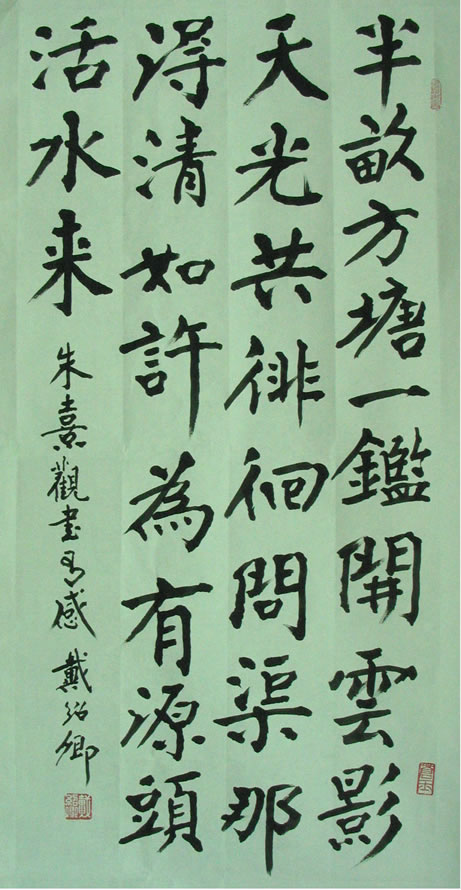 半畝方塘一鑑開雲影
天光共徘徊問渠那
得清如許為有源頭
活水来
朱熹觀書有感 戴紹卿